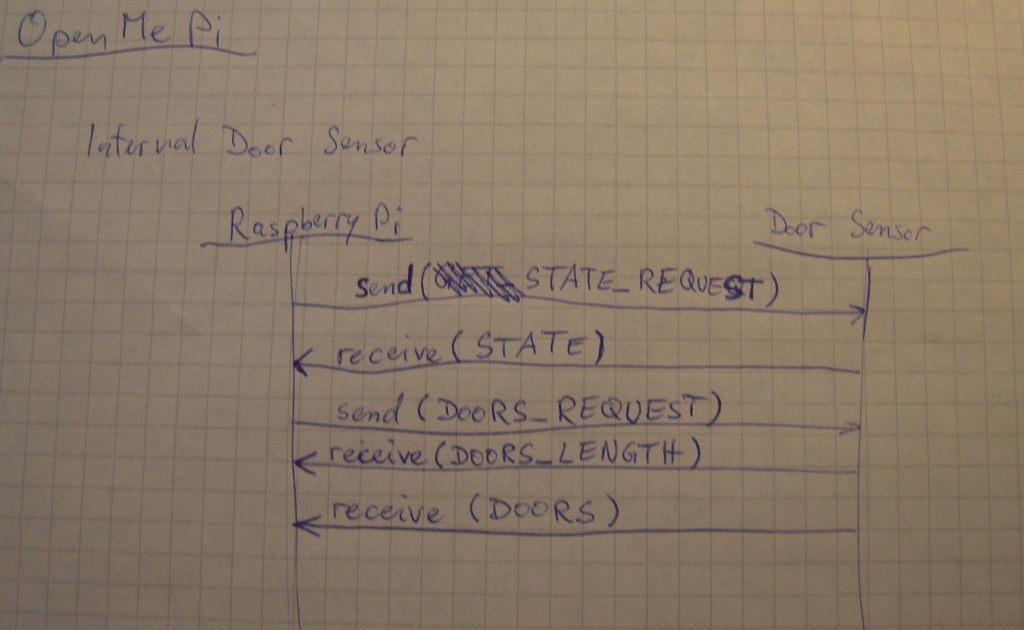 Open Me Pi
Internal Door Sensor
Raspberry Pi
Door Sensor
send( STATE_REQUEST)
receive(STATE)
send (DOORS_REQUEST)
receive(DOORS_LENGTH)
receive (DOORS)